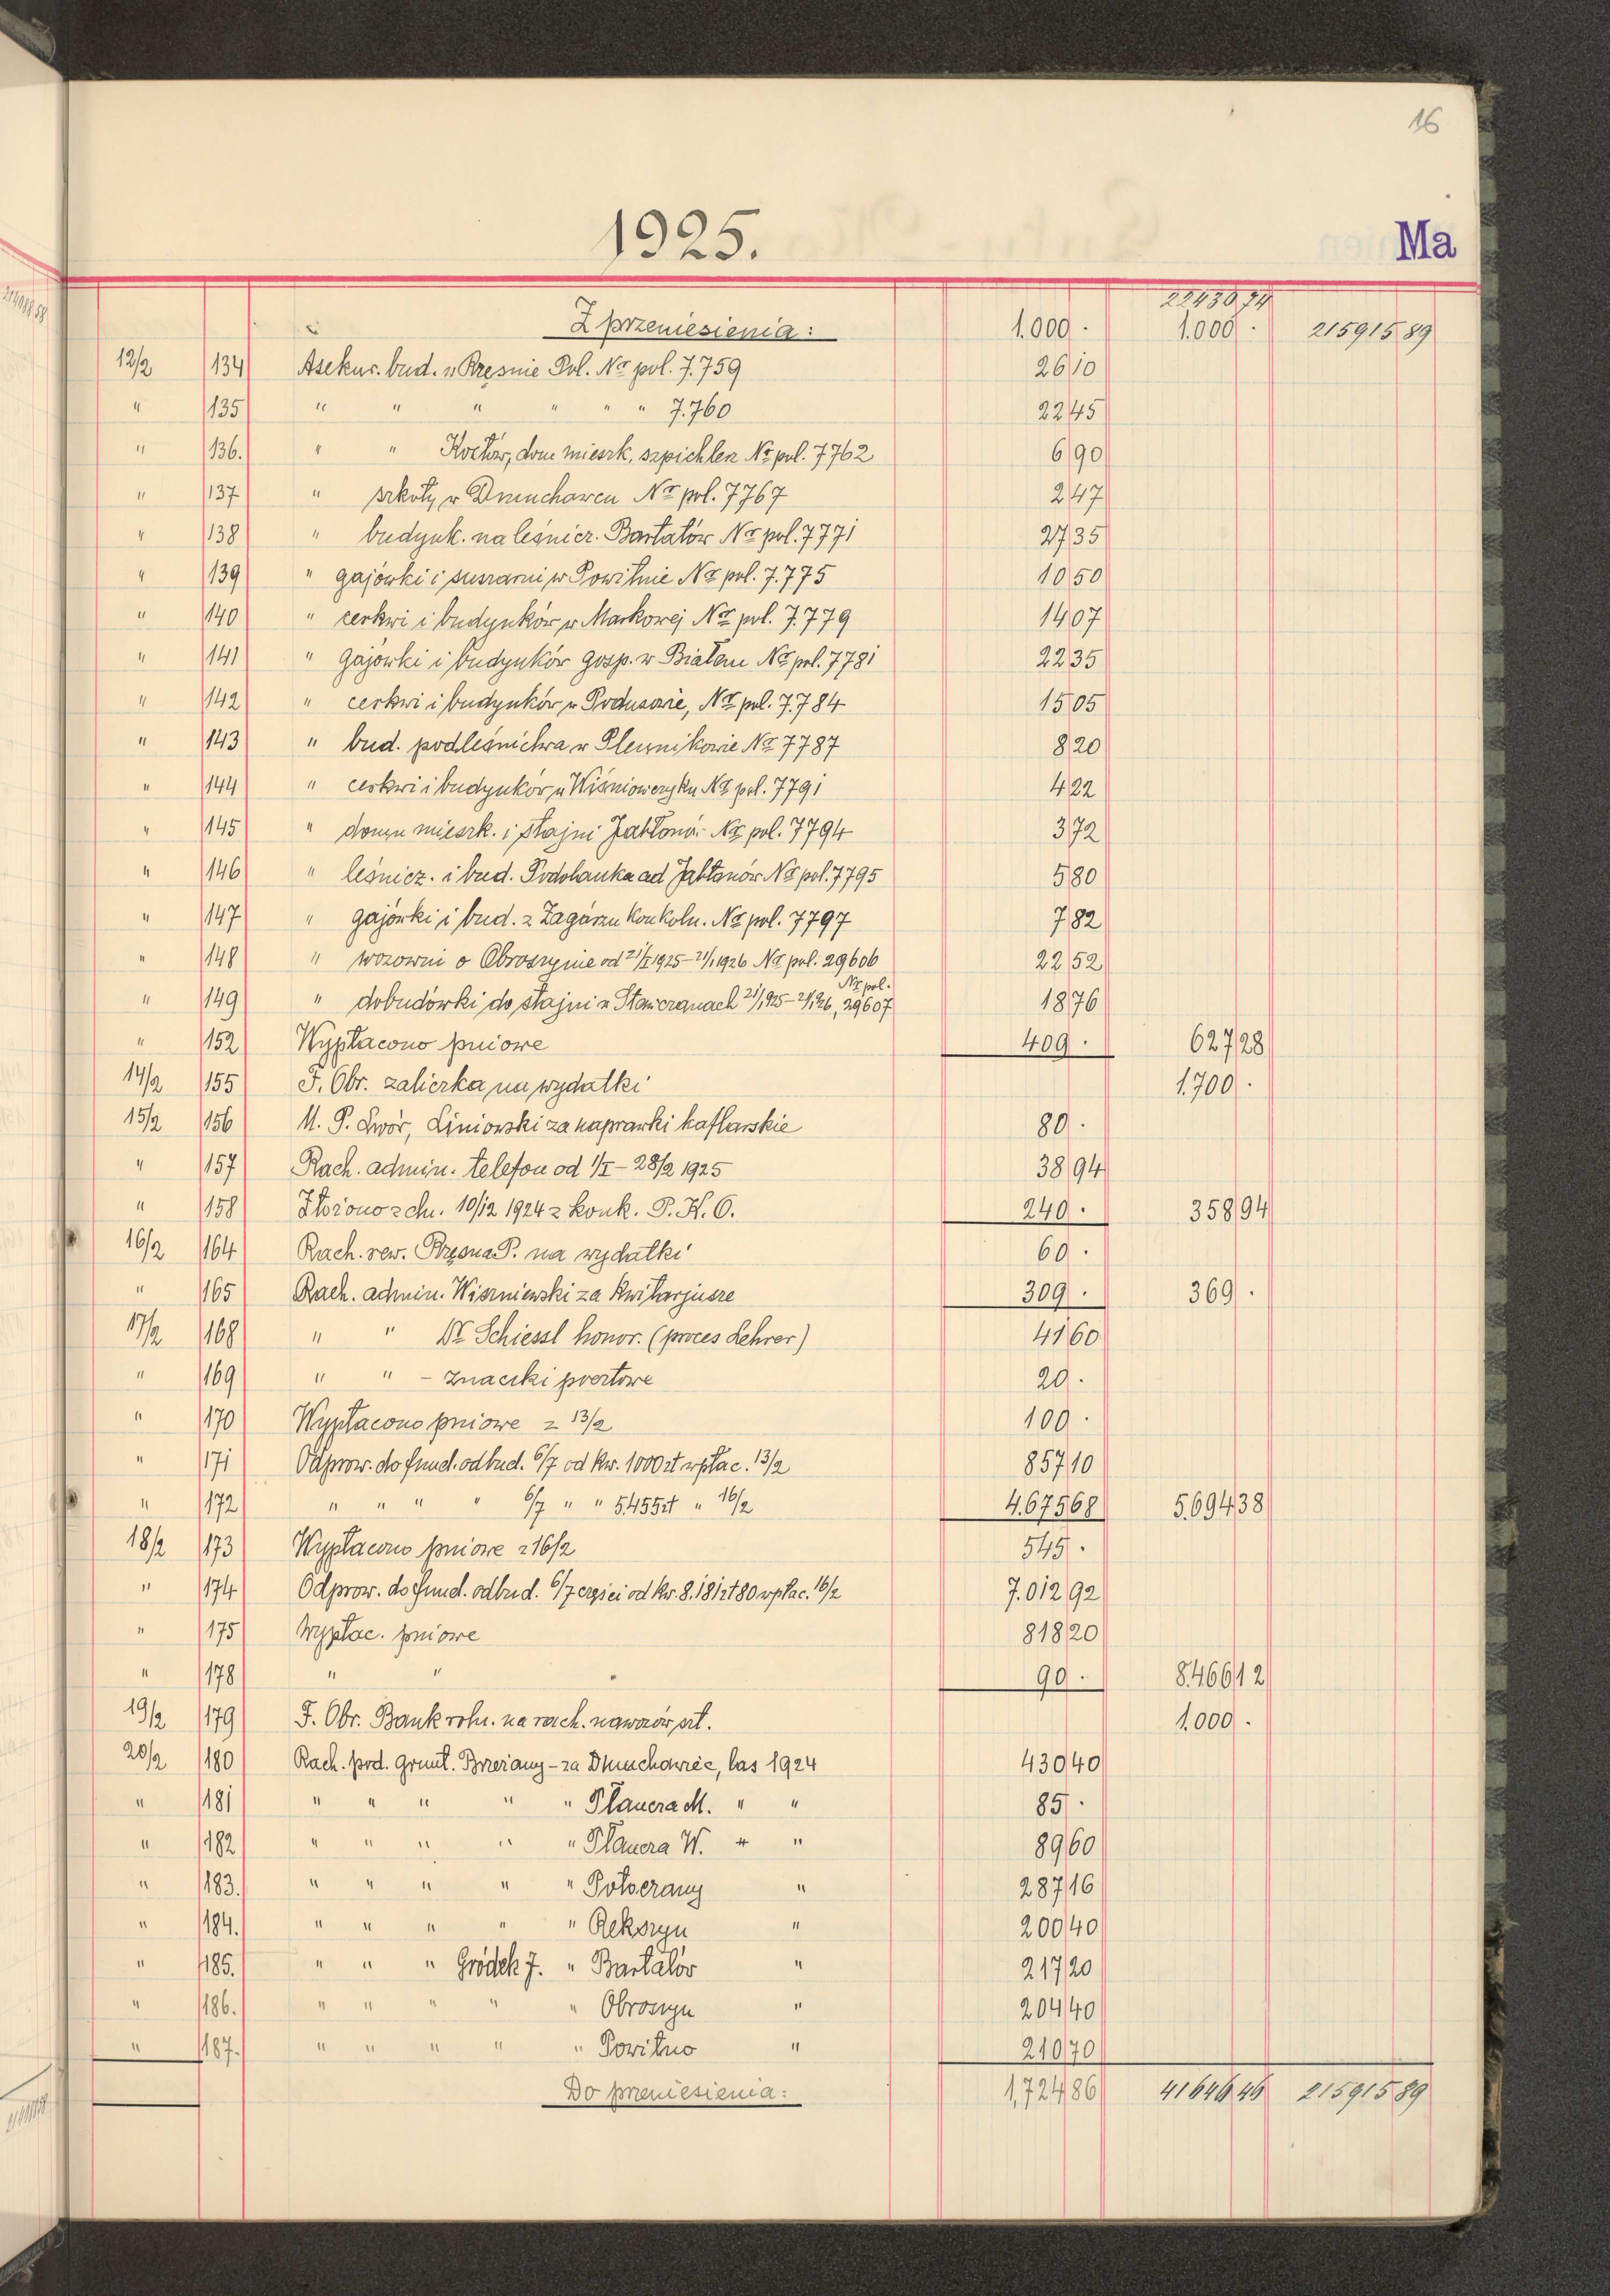 16
1925.
Ma
22430 74
Z przeniesienia: 1.000 · 1.000 · 215915 89
12/2 134 Asekur. bud. w Rzęśnie Pol. Nr pol. 7.759 26 10
" 135 " " " " " " 7.760 22 45
" 136. " " Kociów, dom mieszk. szpichlerz Nr pol. 7762 6 90
" 137 " szkoły w Dmuchawcu Nr pol. 7767 2 47
" 138 " budynk. na leśnicz. Bartatów Nr pol. 7771 27 35
" 139 " gajówki i suszarni w Powitnie Nr pol. 7.775 10 50
" 140 " cerkwi i budynków w Markowej Nr pol. 7.779 14 07
" 141 " gajówki i budynków gosp. w Białem Nr pol. 7781 22 35
" 142 " cerkwi i budynków w Podusowie, Nr pol. 7.784 15 05
" 143 " bud. podleśnictwa w Plennikowie Nr 7787 8 20
" 144 " cerkwi i budynków w Wiśniowczyku Nr pol. 7791 4 22
" 145 " domu mieszk. i stajni Jabłonów Nr pol. 7794 3 72
" 146 " leśnicz. i bud. Podolanka ad Jabłonów Nr pol. 7795 5 80
" 147 " gajówki i bud. z Zagórzu Konkoln. Nr pol. 7797 7 82
" 148 " wozowni o Obroszynie od 21/I 1925 – 21/1 1926 Nr pol. 29606 22 52
" 149 " dobudówki do stajni w Stawczanach 21/1 925 – 21/1 926, Nr pol. 29607 18 76
" 152 Wypłacono pniowe 409 · 627 28
14/2 155 F. Obr. zaliczka na wydatki 1.700 ·
15/2 156 M. P. Lwów, Liniowski za naprawki kaflarskie 80 ·
" 157 Rach. admin. telefon od 1/I – 28/2 1925 38 94
" 158 Złożono z dn. 10/12 1924 z konk. P. K. O. 240 · 358 94
16/2 164 Rach. rew. Rzęsna P. na wydatki 60 ·
" 165 Rach. admin. Wiszniewski za kwitarjusze 309 · 369 ·
17/2 168 " " Dr Schiessl honor. (proces Lehrer) 41 60
" 169 " " – znaczki pocztowe 20 ·
" 170 Wypłacono pniowe z 13/2 100 ·
" 171 Odprow. do fund. odbud. 6/7 od kw. 1000 zł wpłac. 13/2 857 10
" 172 " " " " 6/7 " " 5.455 zł " 16/2 4.675 68 5.694 38
18/2 173 Wypłacono pniowe z 16/2 545 ·
" 174 Odprow. do fund. odbud. 6/7 części od kw. 8.181 zł 80 wpłac. 16/2 7.012 92
" 175 Wypłac. pniowe 818 20
" 178 " " 90 · 8.466 12
19/2 179 F. Obr. Bank roln. na rach. nawozów szt. 1.000 ·
20/2 180 Rach. pod. grunt. Brzeżany – za Dmuchawiec, las 1924 430 40
" 181 " " " " " Płaucza M. " " 85 ·
" 182 " " " " " Płaucza W. " " 89 60
" 183. " " " " " Potoczany " 287 16
" 184. " " " " " Rekszyn " 200 40
" 185. " " " Gródek J. " Bartatów " 217 20
" 186. " " " " " Obroszyn " 204 40
" 187. " " " " " Powitno " 210 70
Do przeniesienia: 1,724 86 41646 46 215915 89